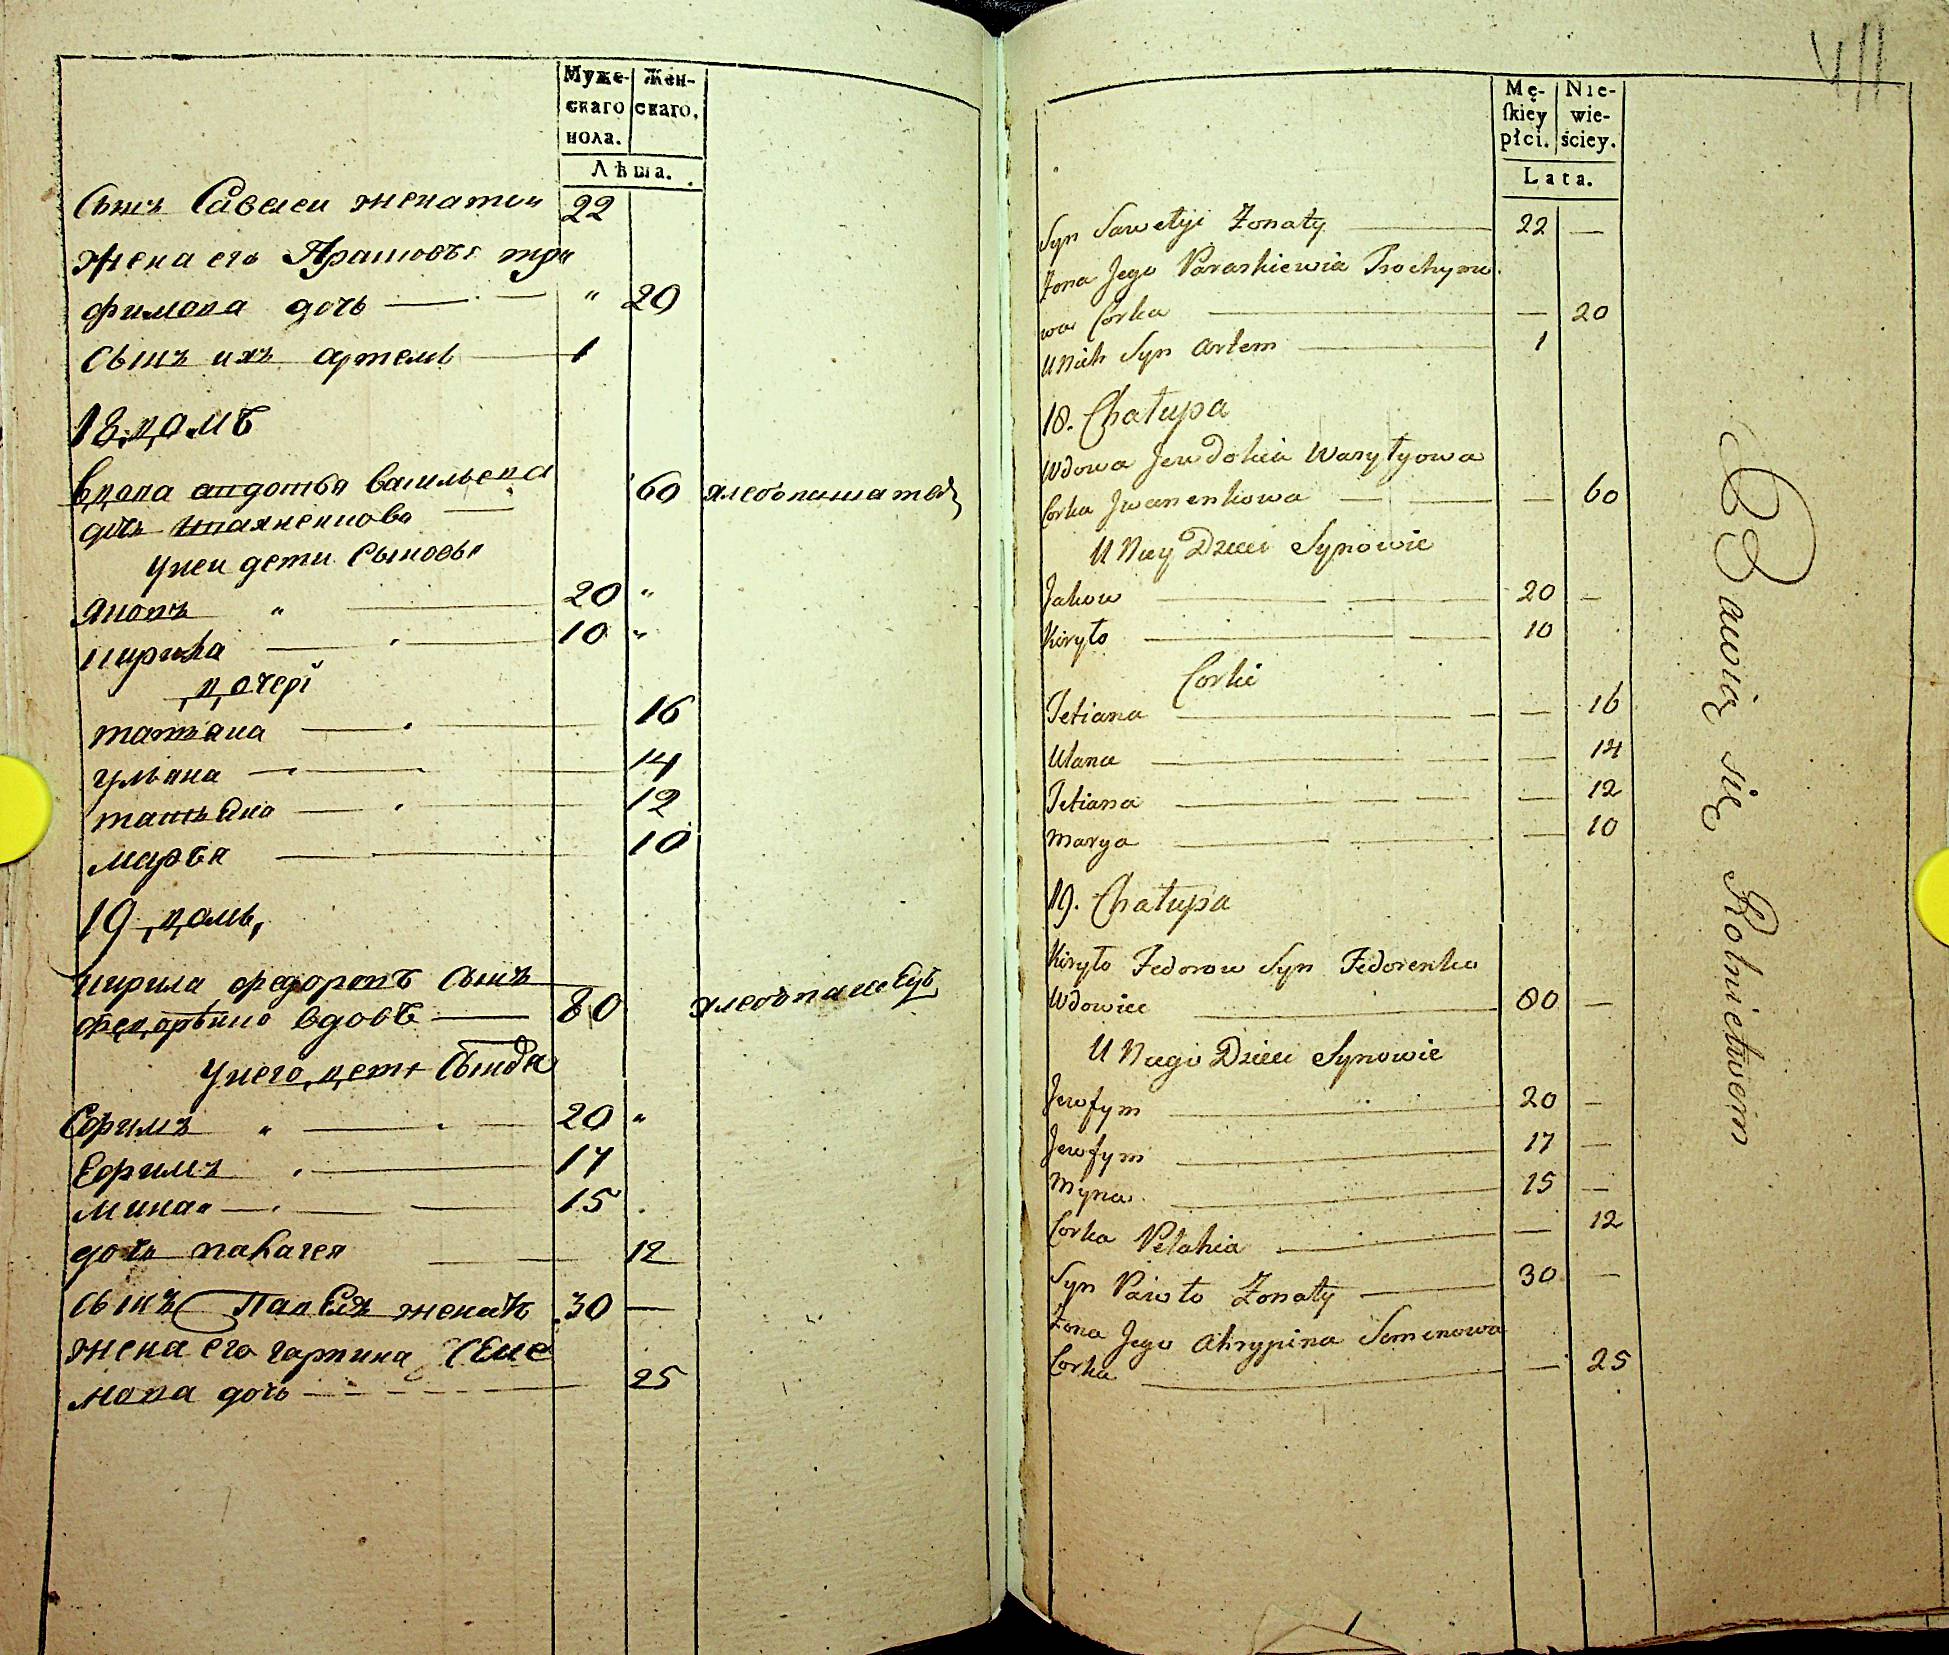 Муже-
скаго
пола.
Жен-
скаго,
Лѣта.
Сынъ Савелеи женатои 22
жена его Прасковъя тро
фимова дочь — " 20
Сынъ ихъ артемъ — 1
18. домъ
вдова авдотья васильева 60
дочь
унеи дети Сыновья
Яковъ " — 20 "
кирила — 10 "
дочері
татьяна — 16
ульяна — 14
татьяна — 12
марья — 10
19 домъ,
кирила федоровъ Сынъ
федорѣнко вдовѣ — 80
унего дети
Ефимъ " — 20 "
Ефимъ — 17
мина — 15
дочь палагея 12
сынъ Павелъ женатъ 30 —
жена его гарпина Семе
нова дочь — 25
VII
Mę-
ſkiey
płci.
Nie-
wie-
ściey.
Lata.
Syn Sawełyi Żonaty — 22 —
Żona Jego Paraskiewia Trochymo
wa Corka — — 20
U Nich Syn Artem — 1
18. Chałupa
Wdowa Jewdokia Wasyłyowa
Corka Jwanenkowa — — 60
U Niey Dzieci Synowie
Jakow — 20 —
Kiryło — 10
Corki
Tetiana — — 16
Ulana — — 14
Tetiana — — 12
Marya — — 10
19. Chałupa
Kiryło Fedorow Syn Fedorenko
Wdowiec — 80 —
U Niego Dzieci Synowie
Jewfym — 20 —
Jewfym — 17 —
Myna — 15 —
Corka Pelahia — — 12
Syn Pawło Żonaty — 30 —
Żona Jego Ahrypina Semenowa
Corka — — 25
Bawią się Rolnictwem